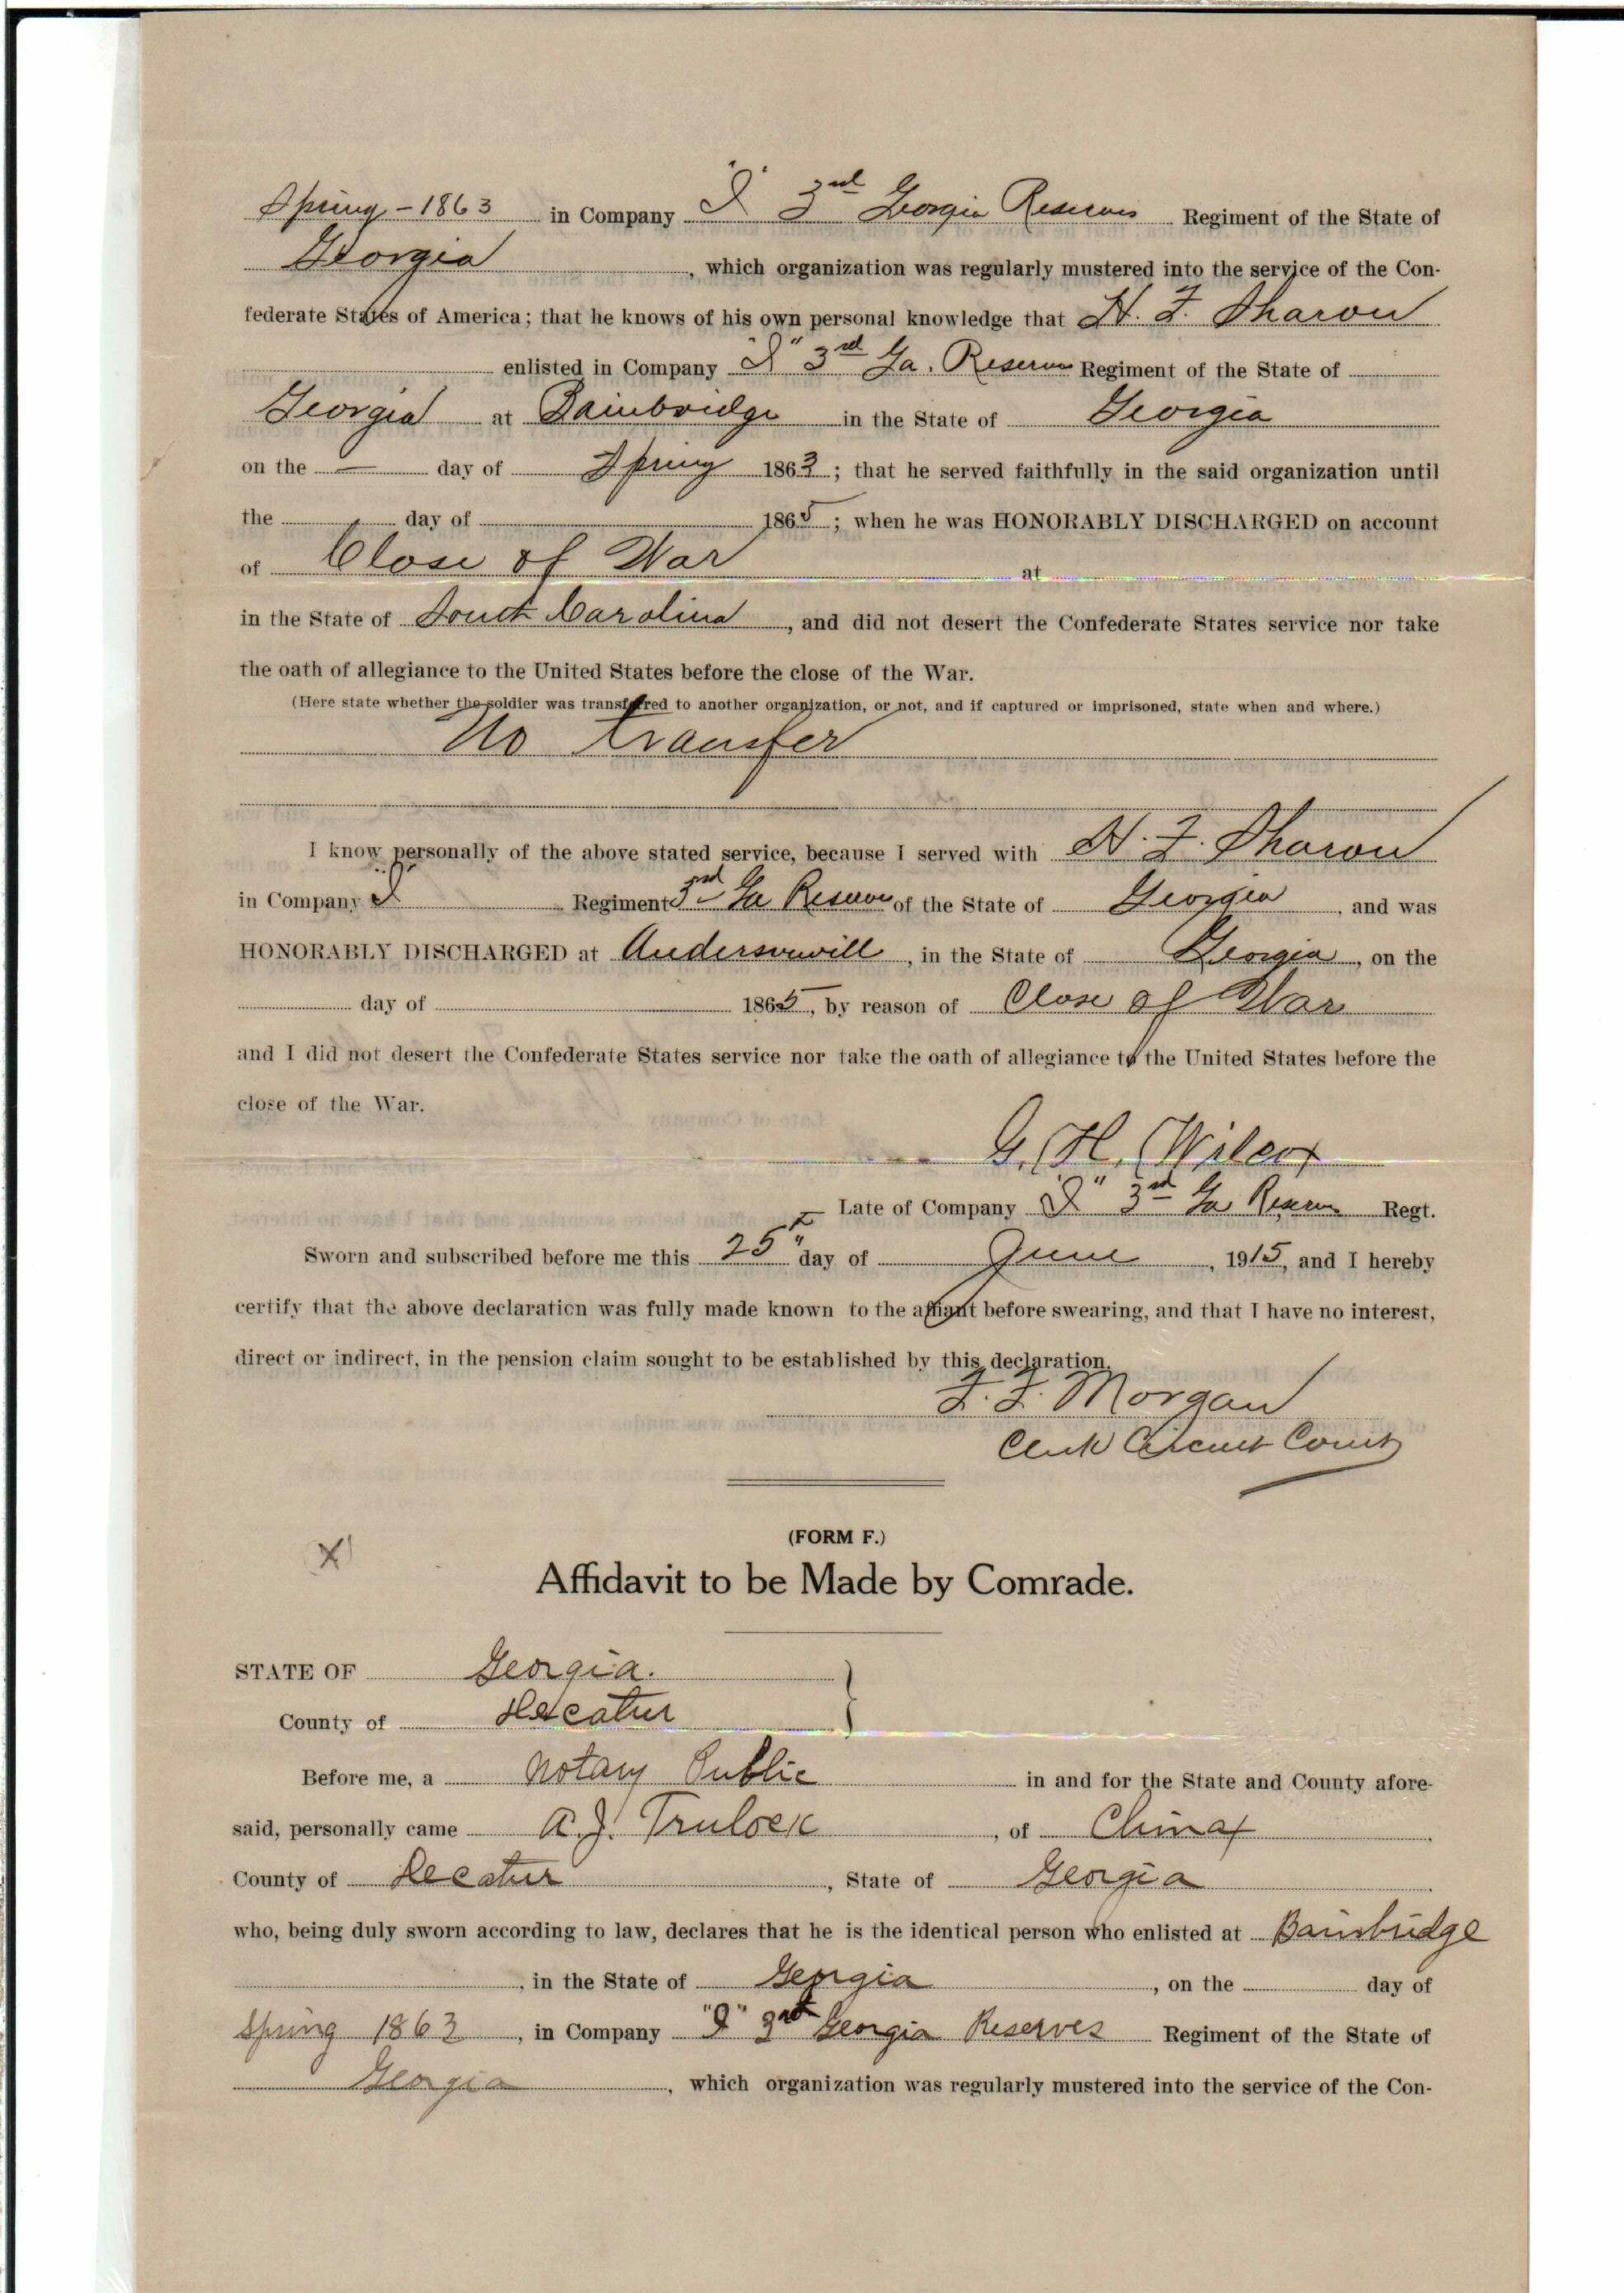 Spring - 1863 in Company "I" 3rd Georgia Reserves Regiment of the State of
Georgia, which organization was regularly mustered into the service of the Con-
federate States of America; that he knows of his own personal knowledge that H. F. Sharon
enlisted in Company "I" 3rd Ga. Reserve Regiment of the State of
Georgia at Bainbridge in the State of Georgia
on the — day of Spring 1863; that he served faithfully in the said organization until
the day of 1865; when he was HONORABLY DISCHARGED on account
of Close of War at
in the State of South Carolina, and did not desert the Confederate States service nor take
the oath of allegiance to the United States before the close of the War.
(Here state whether the soldier was transferred to another organization, or not, and if captured or imprisoned, state when and where.)
No transfer
I know personally of the above stated service, because I served with H. F. Sharon
in Company "I" Regiment 3rd Ga Reserve of the State of Georgia, and was
HONORABLY DISCHARGED at Andersonvill, in the State of Georgia, on the
day of 1865, by reason of Close of War
and I did not desert the Confederate States service nor take the oath of allegiance to the United States before the
close of the War.
G. H. Wilcox
Late of Company "I" 3rd Ga Reserve Regt.
Sworn and subscribed before me this 25" day of June, 1915, and I hereby
certify that the above declaration was fully made known to the affiant before swearing, and that I have no interest,
direct or indirect, in the pension claim sought to be established by this declaration.
F. F. Morgan
Clerk Circuit Court
(FORM F.)
X
Affidavit to be Made by Comrade.
STATE OF Georgia.
County of Decatur
Before me, a Notary Public in and for the State and County afore-
said, personally came A. J. Trulock, of Climax
County of Decatur, State of Georgia
who, being duly sworn according to law, declares that he is the identical person who enlisted at Bainbridge
, in the State of Georgia, on the day of
Spring 1863, in Company "I" 3rd Georgia Reserves Regiment of the State of
Georgia, which organization was regularly mustered into the service of the Con-